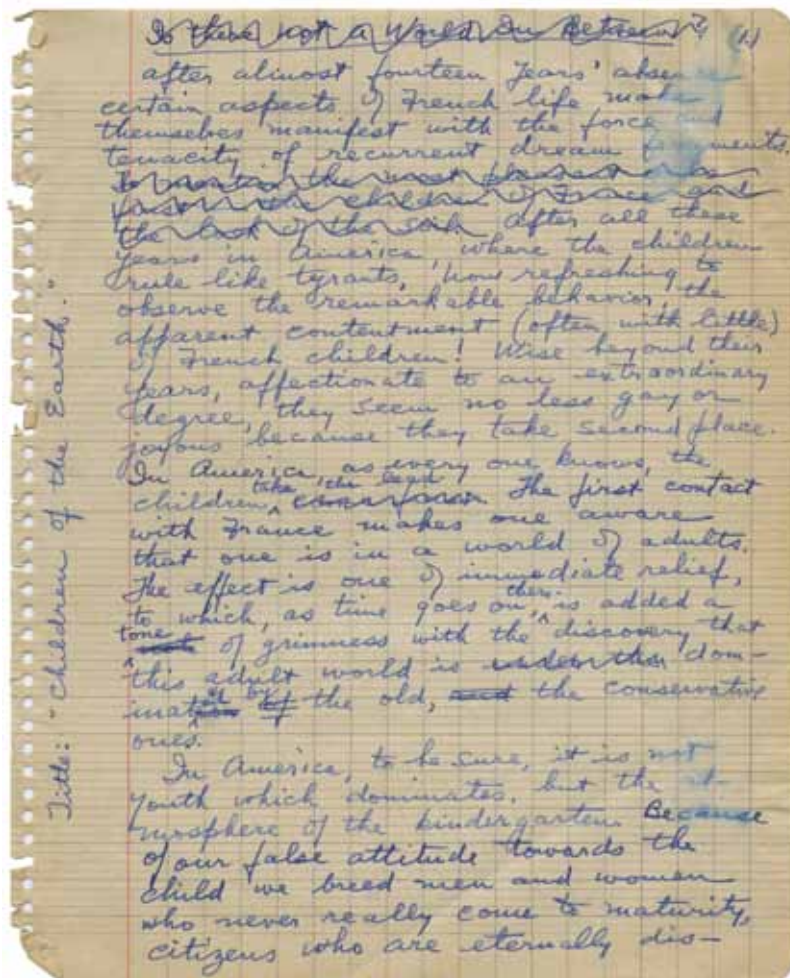 Is there not a World In Between? (1.)
after almost fourteen years' absence
certain aspects of French life make
themselves manifest with the force and
tenacity of recurrent dream fragments.
To mention the most pleasant one
first — the children of France and
the look of the
after all these
years in America, where the children
rule like tyrants, how refreshing to
observe the remarkable behavior, the
apparent contentment (often with little)
of French children! Wise beyond their
years, affectionate to an extraordinary
degree, they seem no less gay or
joyous because they take second place.
In America, as every one knows, the
children take the lead. The first contact
with France makes one aware
that one is in a world of adults.
The effect is one of immediate relief,
to which, as time goes on, there is added a
tone of grimness with the discovery that
this adult world is under the dom-
inated by the old, and the conservative
ones.
In America, to be sure, it is not
youth which dominates, but the at-
mosphere of the kindergarten. Because
of our false attitude towards the
child we breed men and women
who never really come to maturity,
citizens who are eternally dis-
Title: "Children of the Earth."